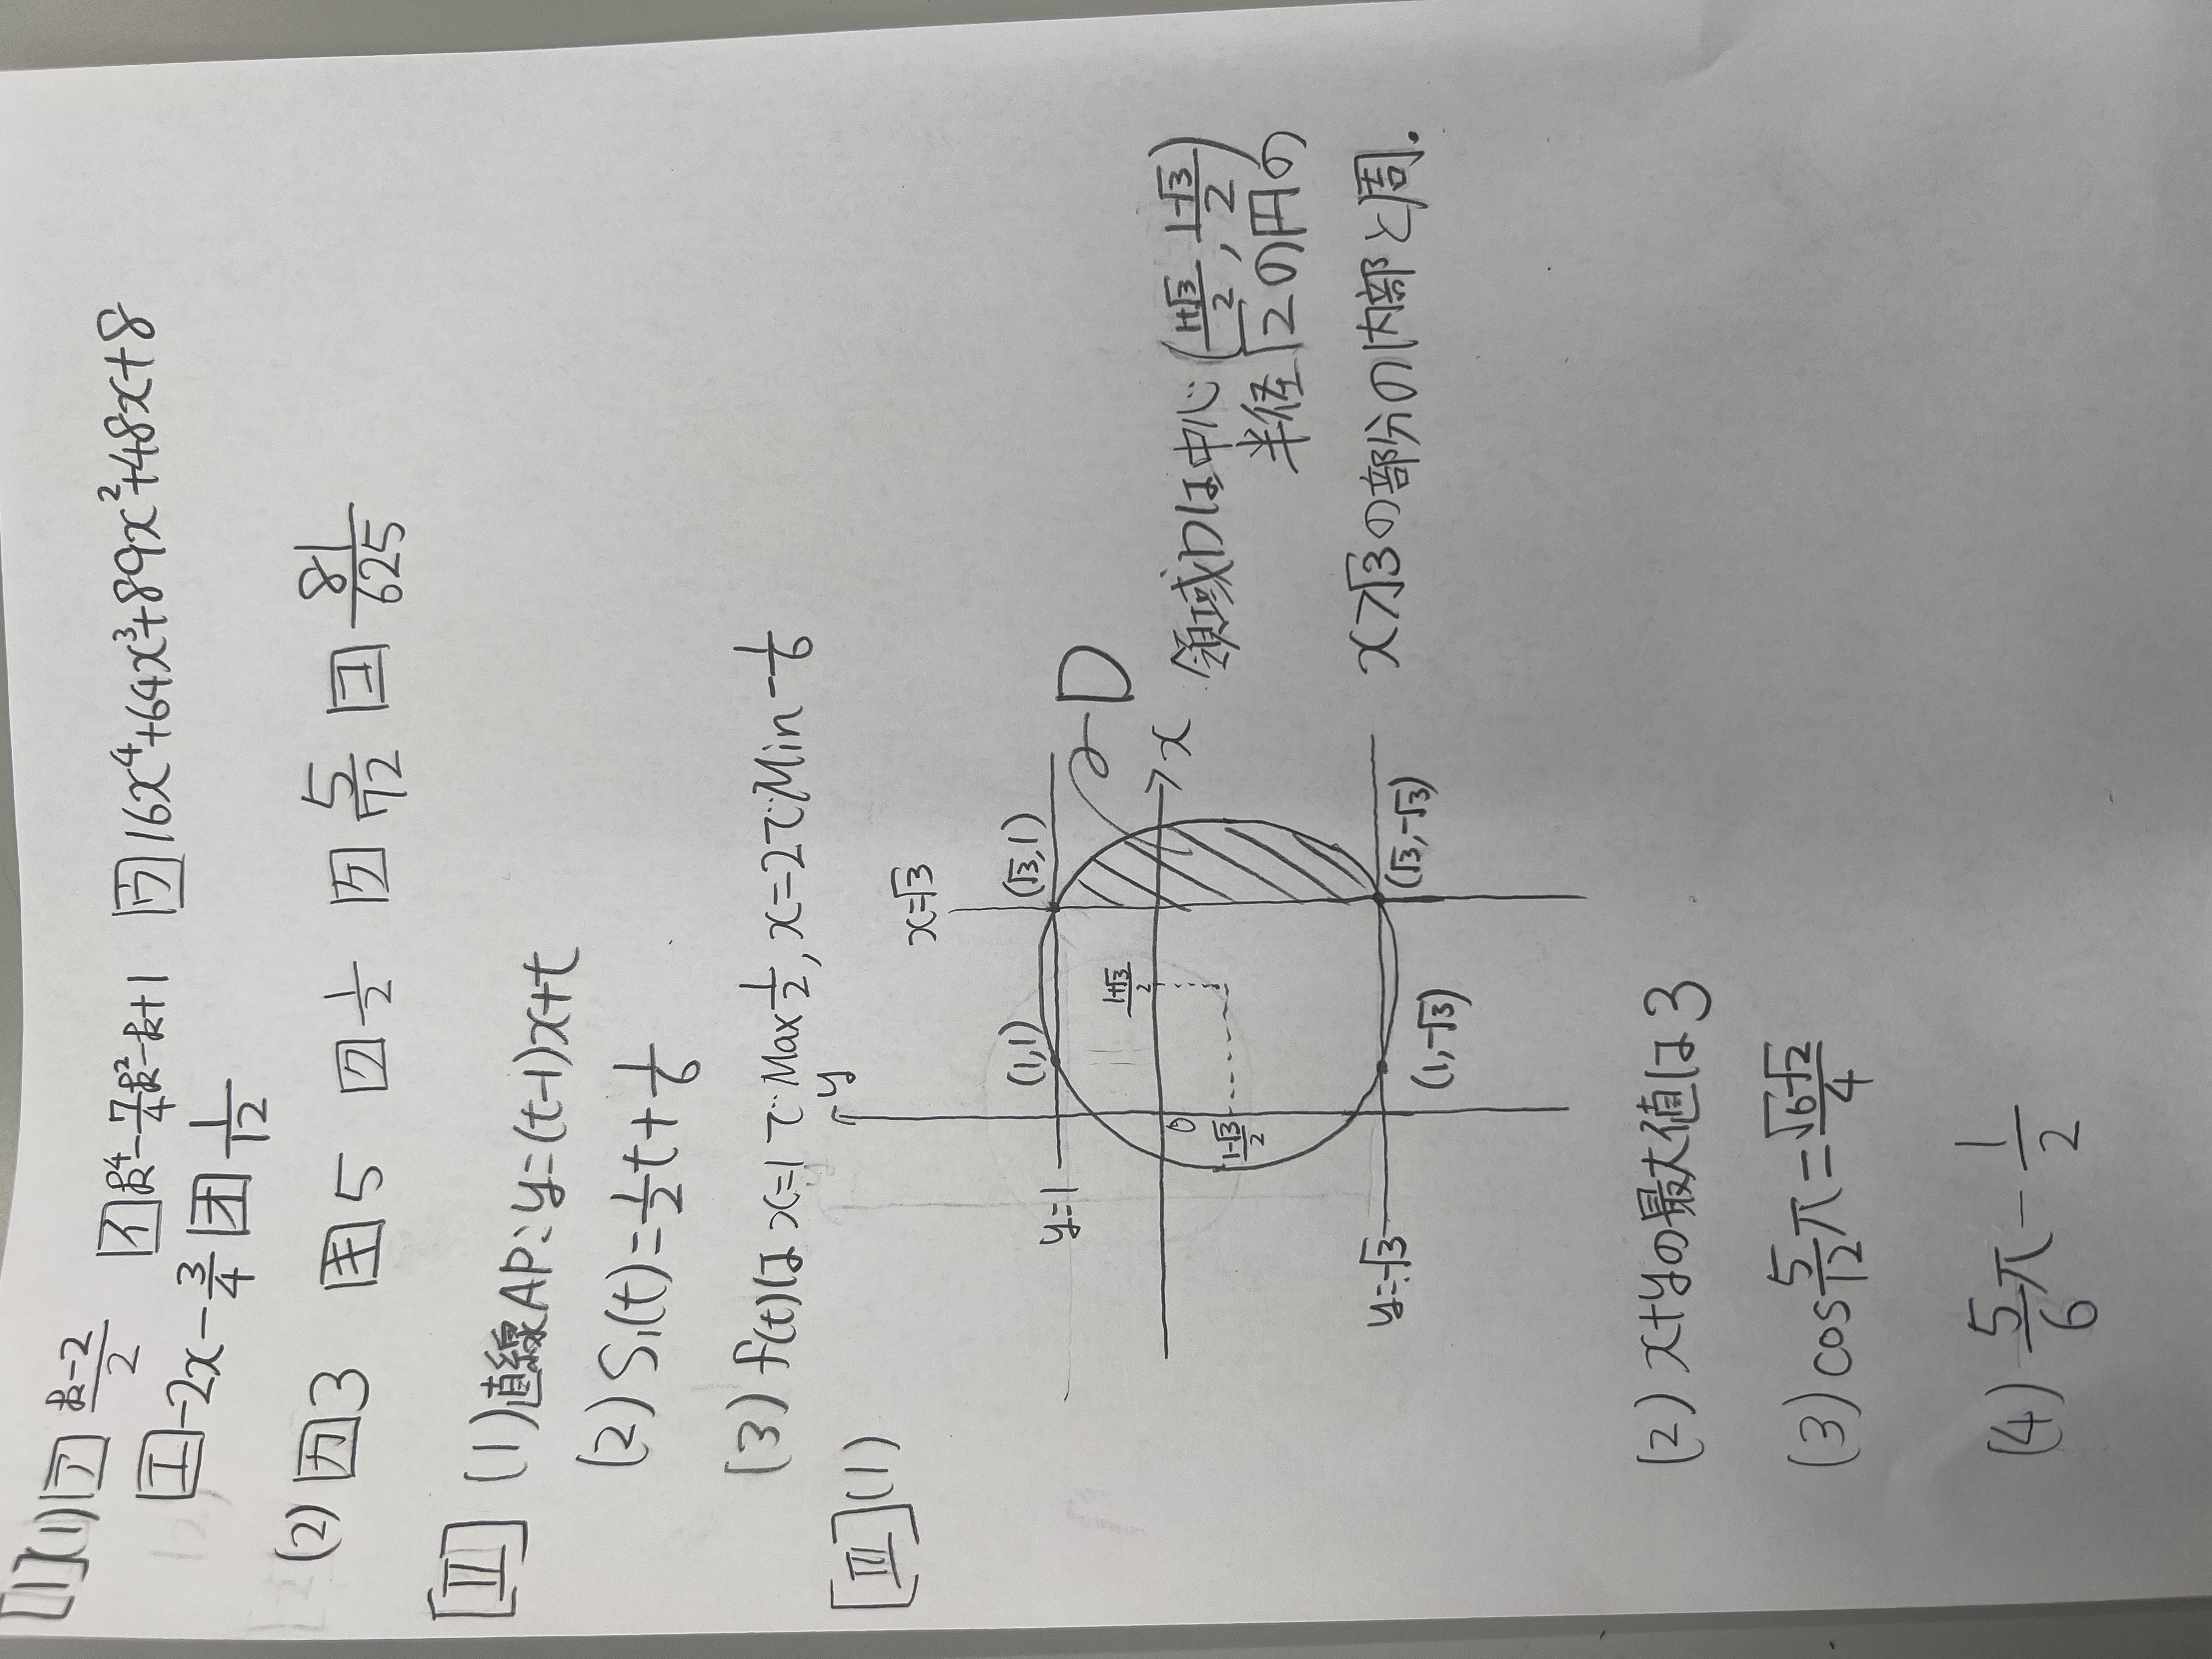 [I](1) ア (k-2)/2 イ k⁴-(7/4)k²-k+1 ウ 16x⁴+64x³+89x²+48x+8
エ -2x-3/4 オ 1/12
(2) カ 3 キ 5 ク 1/2 ケ 5/12 コ 81/625
[II] (1) 直線AP: y=(t-1)x+t
(2) S₁(t)=1/2 t+1/6
(3) f(t)は x=1で Max 1/2, x=2で Min -1/6
[III] (1)
y
x=√3
y=1
(1,1)
(√3,1)
D
(1+√3)/2
x
0
(1-√3)/2
y=-√3
(1,-√3)
(√3,-√3)
領域Dは中心((1+√3)/2, (1-√3)/2)
半径√2の円の
x>√3の部分の内部と周.
(2) x+yの最大値は3
(3) cos 5/12 π=(√6-√2)/4
(4) 5/6 π - 1/2